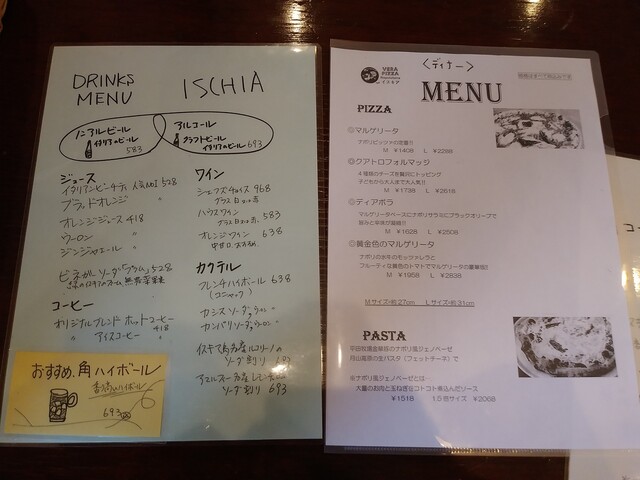 DRINKS
MENU
ISCHIA
ノンアルビール
イタリアのビール
583
アルコール
クラフトビール
イタリアのビール 693
ジュース
イタリアンピーチティ 人気No.1 528
ブラッドオレンジ 〃
オレンジジュース 418
ウーロン 〃
ジンジャエール 〃
ビネガーソーダ「プラム」528
コーヒー
オリジナルブレンド ホットコーヒー
418
〃 アイスコーヒー 〃
おすすめ、角ハイボール
ハイボール
693
ワイン
シェフズチョイス 968
グラス 白 or 赤
ハウスワイン 583
グラス 白 or 赤
オレンジワイン 638
中甘口、おすすめ
カクテル
フレンチハイボール 638
(コニャック)
カシスソーダ、ウーロン 〃
カンパリソーダ、ウーロン 〃
イスキア島名産ルコリーノの
ソーダ割り 693
アマルフィー名産レモンチェッロ
ソーダ割り 693
<ディナー>
VERA
PIZZA
Napoletana
イスキア
価格はすべて税込みです
MENU
PIZZA
◎マルゲリータ
ナポリピッツァの定番!!
M ¥1408 L ¥2288
◎クアトロフォルマッジ
4種類のチーズを贅沢にトッピング
子どもから大人まで大人気!!
M ¥1738 L ¥2618
◎ディアボラ
マルゲリータベースにナポリサラミにブラックオリーブで
旨みと辛味が凝縮!!
M ¥1628 L ¥2508
◎黄金色のマルゲリータ
ナポリの水牛のモッツァレラと
フルーティな黄色のトマトでマルゲリータの豪華版!!
M ¥1958 L ¥2838
Mサイズ・約27cm Lサイズ・約31cm
PASTA
平田牧場金華豚のナポリ風ジェノベーゼ
秋山高原の生パスタ(フェットチーネ)で
※ナポリ風ジェノベーゼとは…
大量のお肉と玉ねぎをコトコト煮込んだソース
¥1518 1.5倍サイズ ¥2068